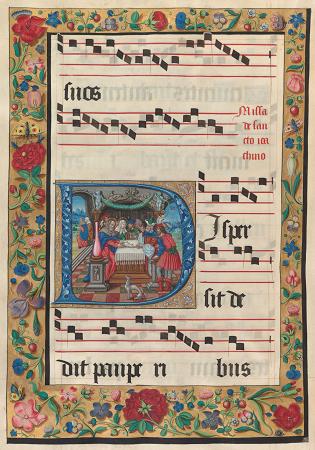 suos
Missa
de san
cto ioa
chino
D Isper
sit de
dit paupe ri bus